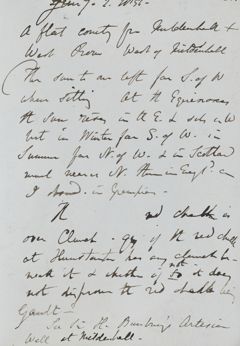 A flat country from Mildenhall &
West Row West of Mildenhall
The sun to our left far S. of W
when sitting At the Equinoxes
the Sun rises in the E. & sets in W
but in Winter far S. of W. in
Summer far N. of W. & in Scotland
much nearer N. than in Engl.d
I stood. in
The red chalk is
over Clunch - if the red chalk
at Hunstanton has any clunch
it & chalk it does
not disprove the red chalk being
Gault -
See Sir H. Bunbury's Artesian
Well at Mildenhall.